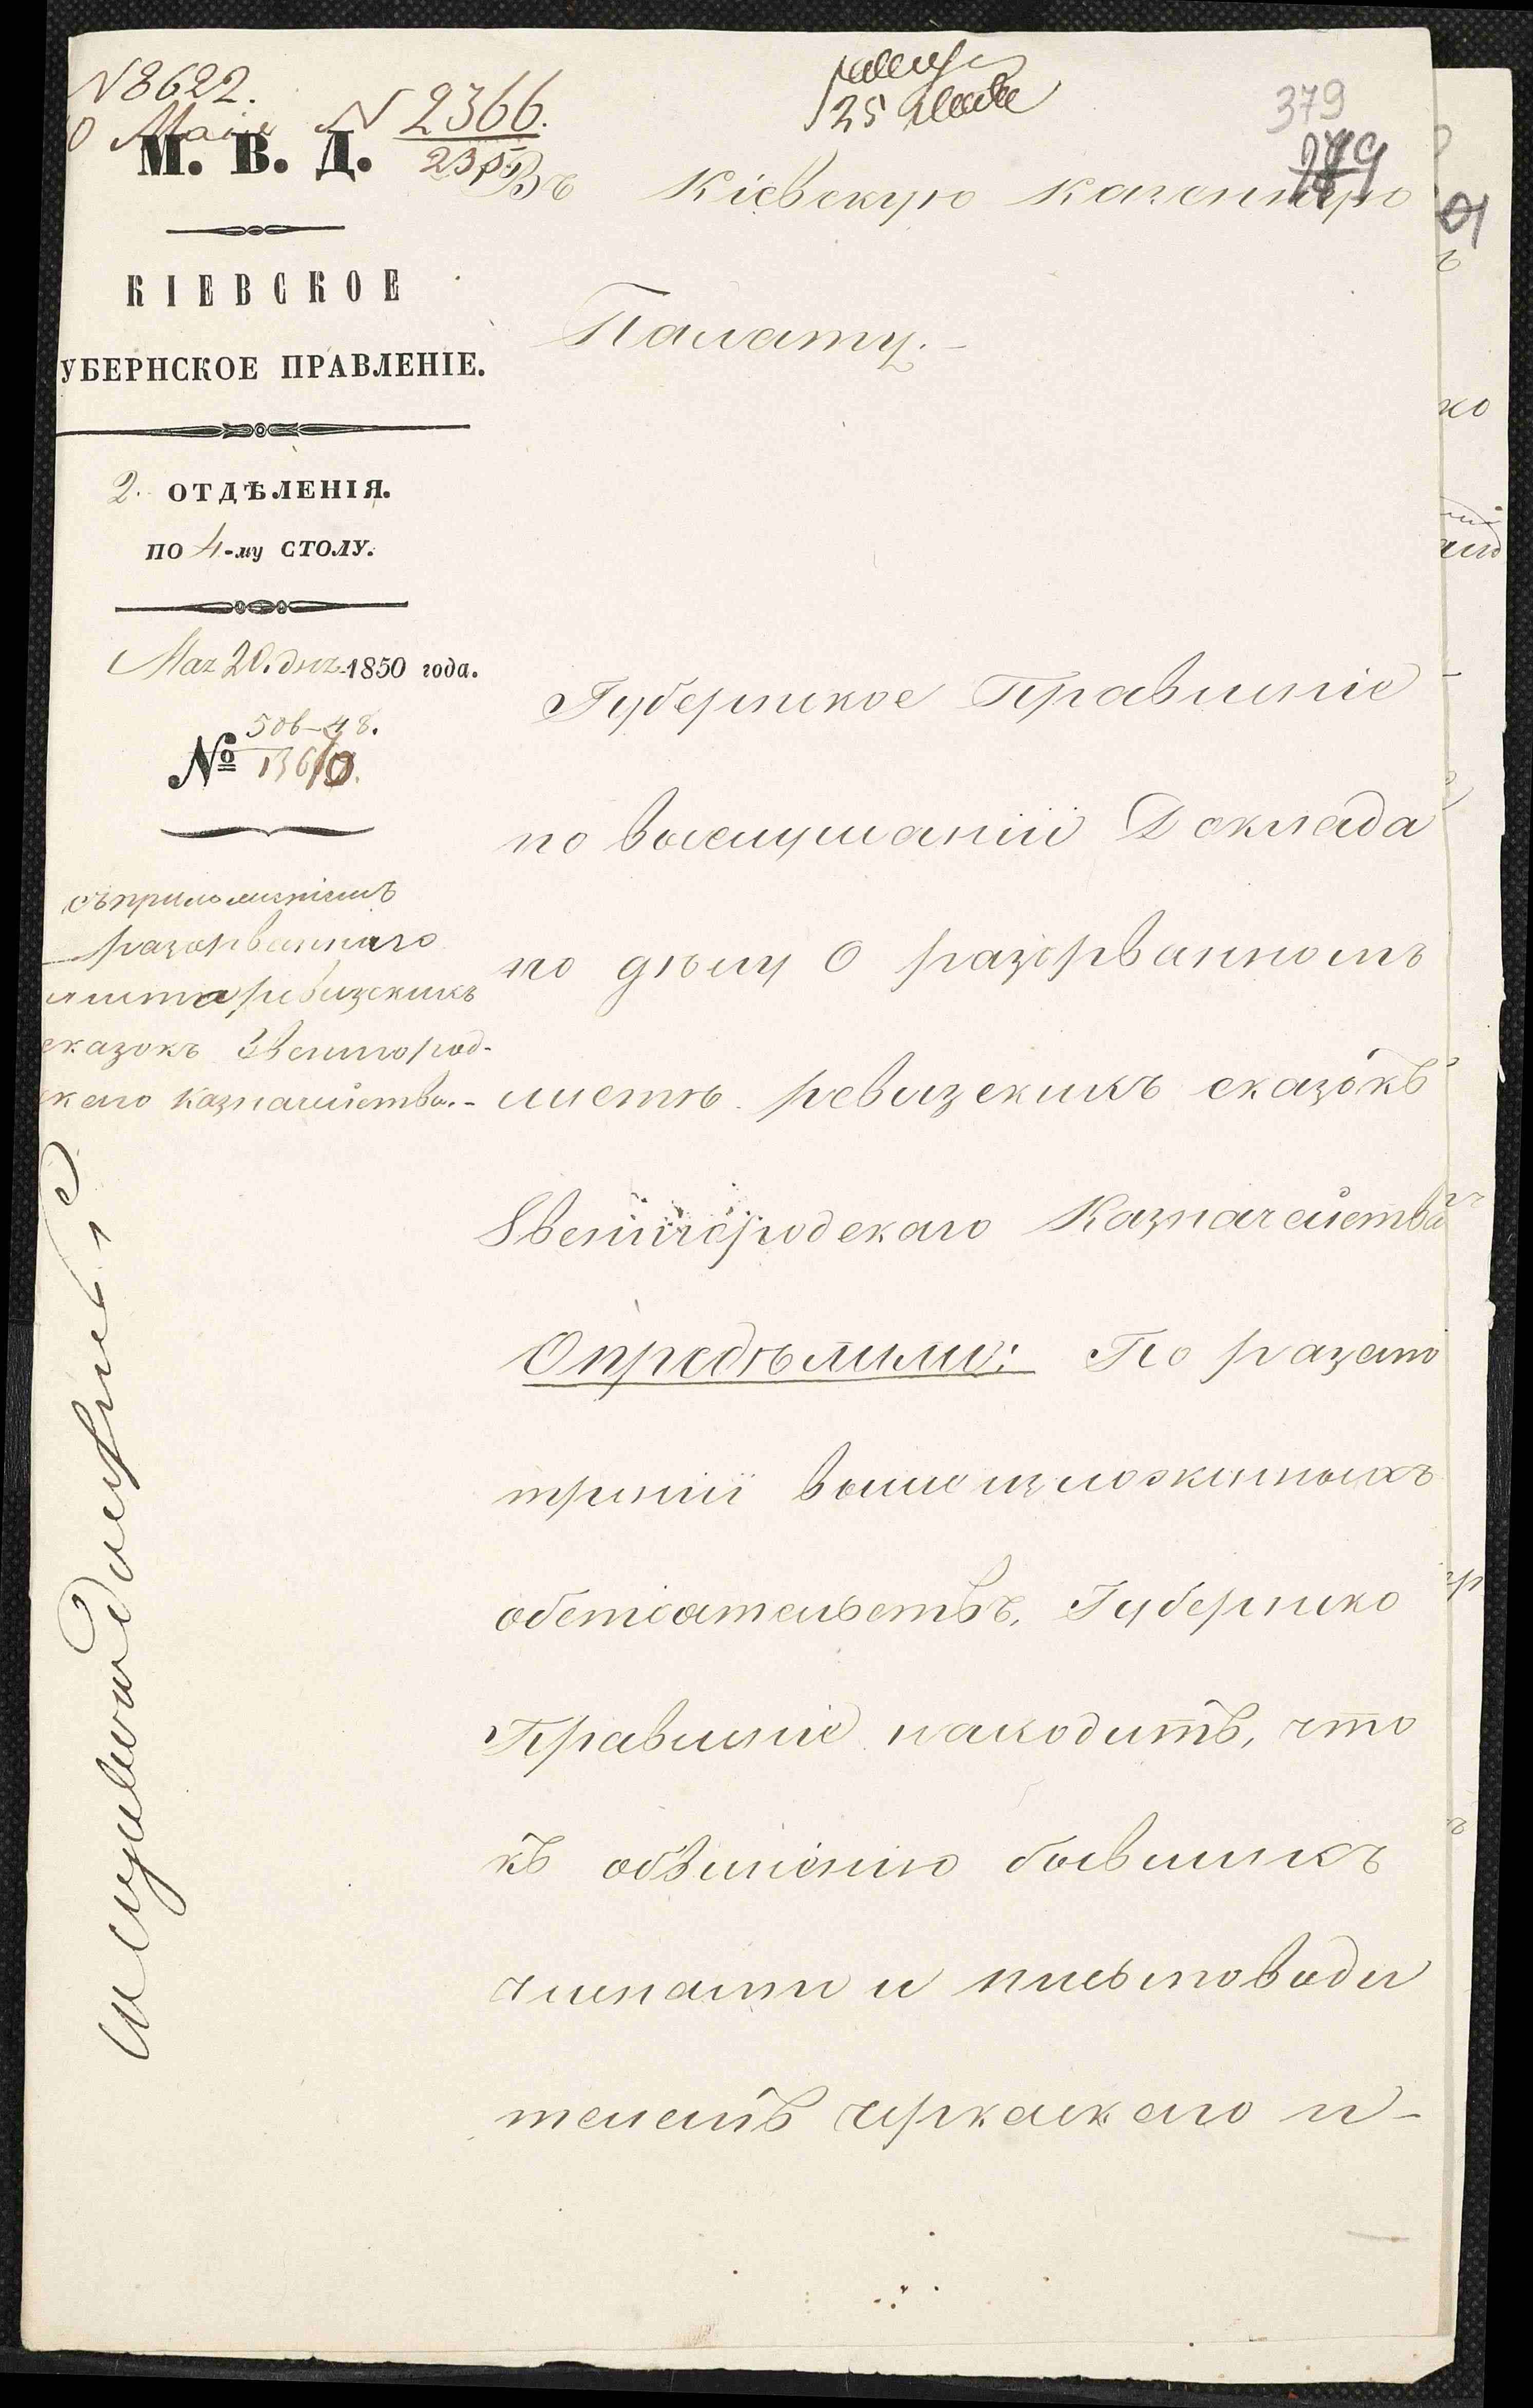 N 8622.
Маія N 2366.
25 Маія
379
М. В. Д.
Въ Кіевскую казенную
КІЕВСКОЕ
Палату.-
УБЕРНСКОЕ ПРАВЛЕНІЕ.
2. ОТДѢЛЕНІЯ.
ПО 4-му СТОЛУ.
Мая 20. дня 1850 года.
506-48.
№ 13610.
съ приложеніемъ
разорваннаго
листа ревизскихъ
сказокъ Звенигород-
скаго казначейства.-
Губернское Правленіе
по выслушаніи Доклада
по дѣлу О разорванномъ
листѣ ревизскихъ сказокъ
Звенигородскаго Казначейства
Опредѣлили: По разсмо
трѣніи вышеизложенныхъ
обстоятельствъ, Губернско
Правленіе находитъ, что
къ обвиненію бывшихъ
членами и письмоводи
телемъ Черкаскаго и-